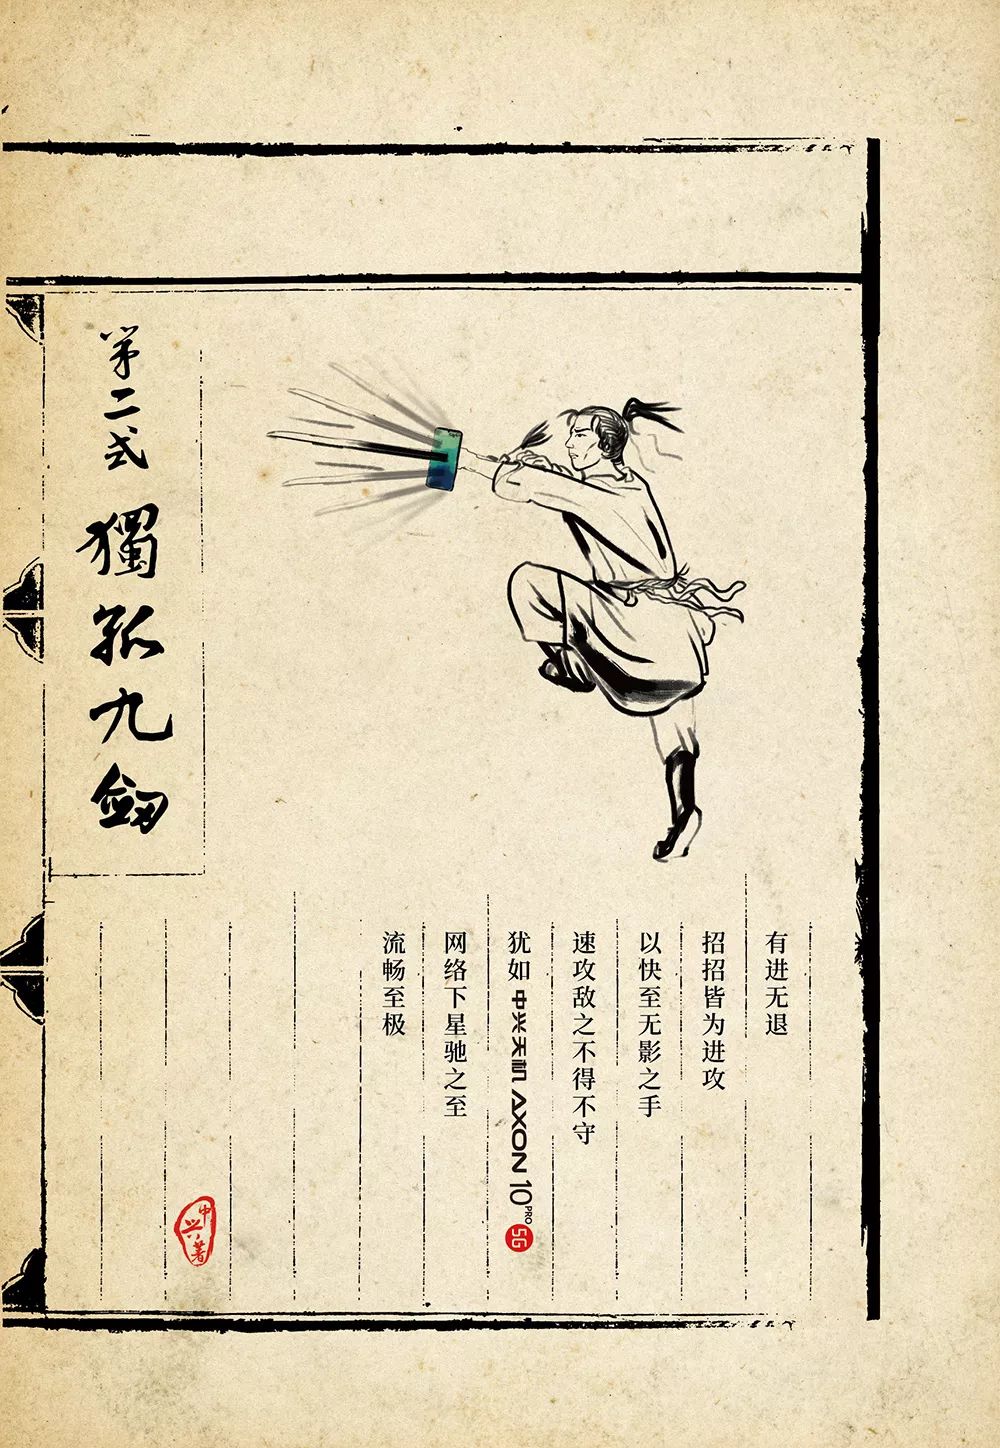 有进无退
招招皆为进攻
以快至无影之手
速攻敌之不得不守
犹如中兴天机 AXON 10 PRO 5G
网络下星驰之至
流畅至极
第二式 獨孤九劍
中兴著